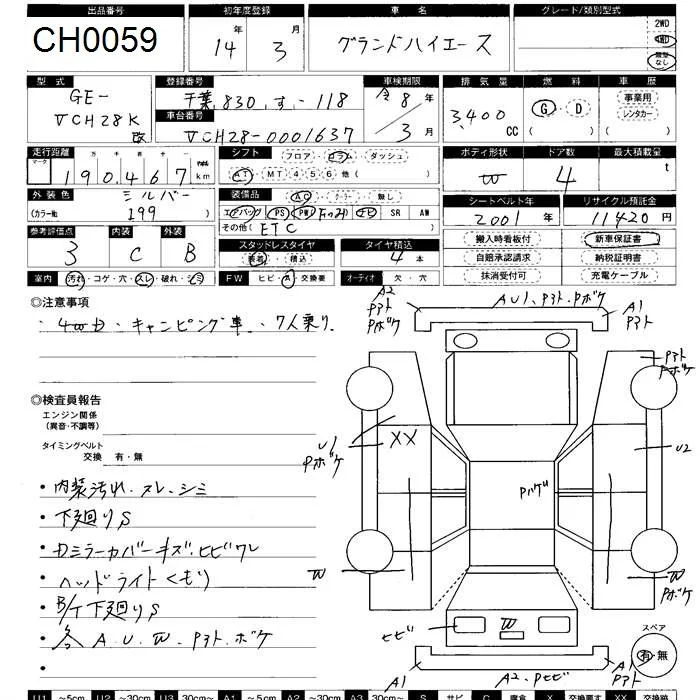 出品番号 初年度登録 車名 グレード/類別型式
CH0059 14年 3月 グランドハイエース 2WD 4WD 類型なし
型式 登録番号 車検期限 排気量 燃料 車歴
GE-VCH28K改 千葉 830 す -118 令8年 3月 3,400CC G・D ( ) 事業用 レンタカー ( )
車台番号
VCH28-0001637
走行距離 マーク 十万千百十 190,467km
シフト フロア・コラム・ダッシュ
AT・MT 4 5 6 他( )
ボディ形状 ドア数 最大積載量
W 4 t
外装色 シルバー
(カラーNo. 199 )
装備品 AC・クーラー・無し
エアバッグ PS PW ナビ SR AW
その他( ETC )
シートベルト年 リサイクル預託金
2001年 11420円
参考評価点 内装 外装
3 C B
スタッドレスタイヤ タイヤ積込
装着・積込 4本
搬入時看板付 新車保証書
自賠承認請求 納税証明書
抹消受付可 充電ケーブル
室内 汚れ・コゲ・穴・スレ・破れ・シミ FW ヒビ・A・交換要 オーディオ 欠・穴
◎注意事項
・4WD・キャンピング車・7人乗り
◎検査員報告
エンジン関係
(異音・不調等)
タイミングベルト
交換 有・無
・内装汚れ・スレ・シミ
・下廻りS
・カミラーカバーキズ・ヒビワレ
・ヘッドライトくもり
・B/T下廻りS
・各A・U・W・Pアト・ボケ
・
A2
Pアト
Pボケ
AU1、Pアト・Pボケ
A1
Pアト
Pアト
Pボケ
U1
Pボケ
XX
U2
Pハゲ
W
W
Pボケ
ヒビ
W
A1
A2・Pヒビ
A1
Pアト
スペア
有・無
U1 ～5cm U2 ～30cm U3 30cm～ A1 ～5cm A2 ～30cm A3 30cm～ S サビ C 腐食 X 交換要す XX 交換跡